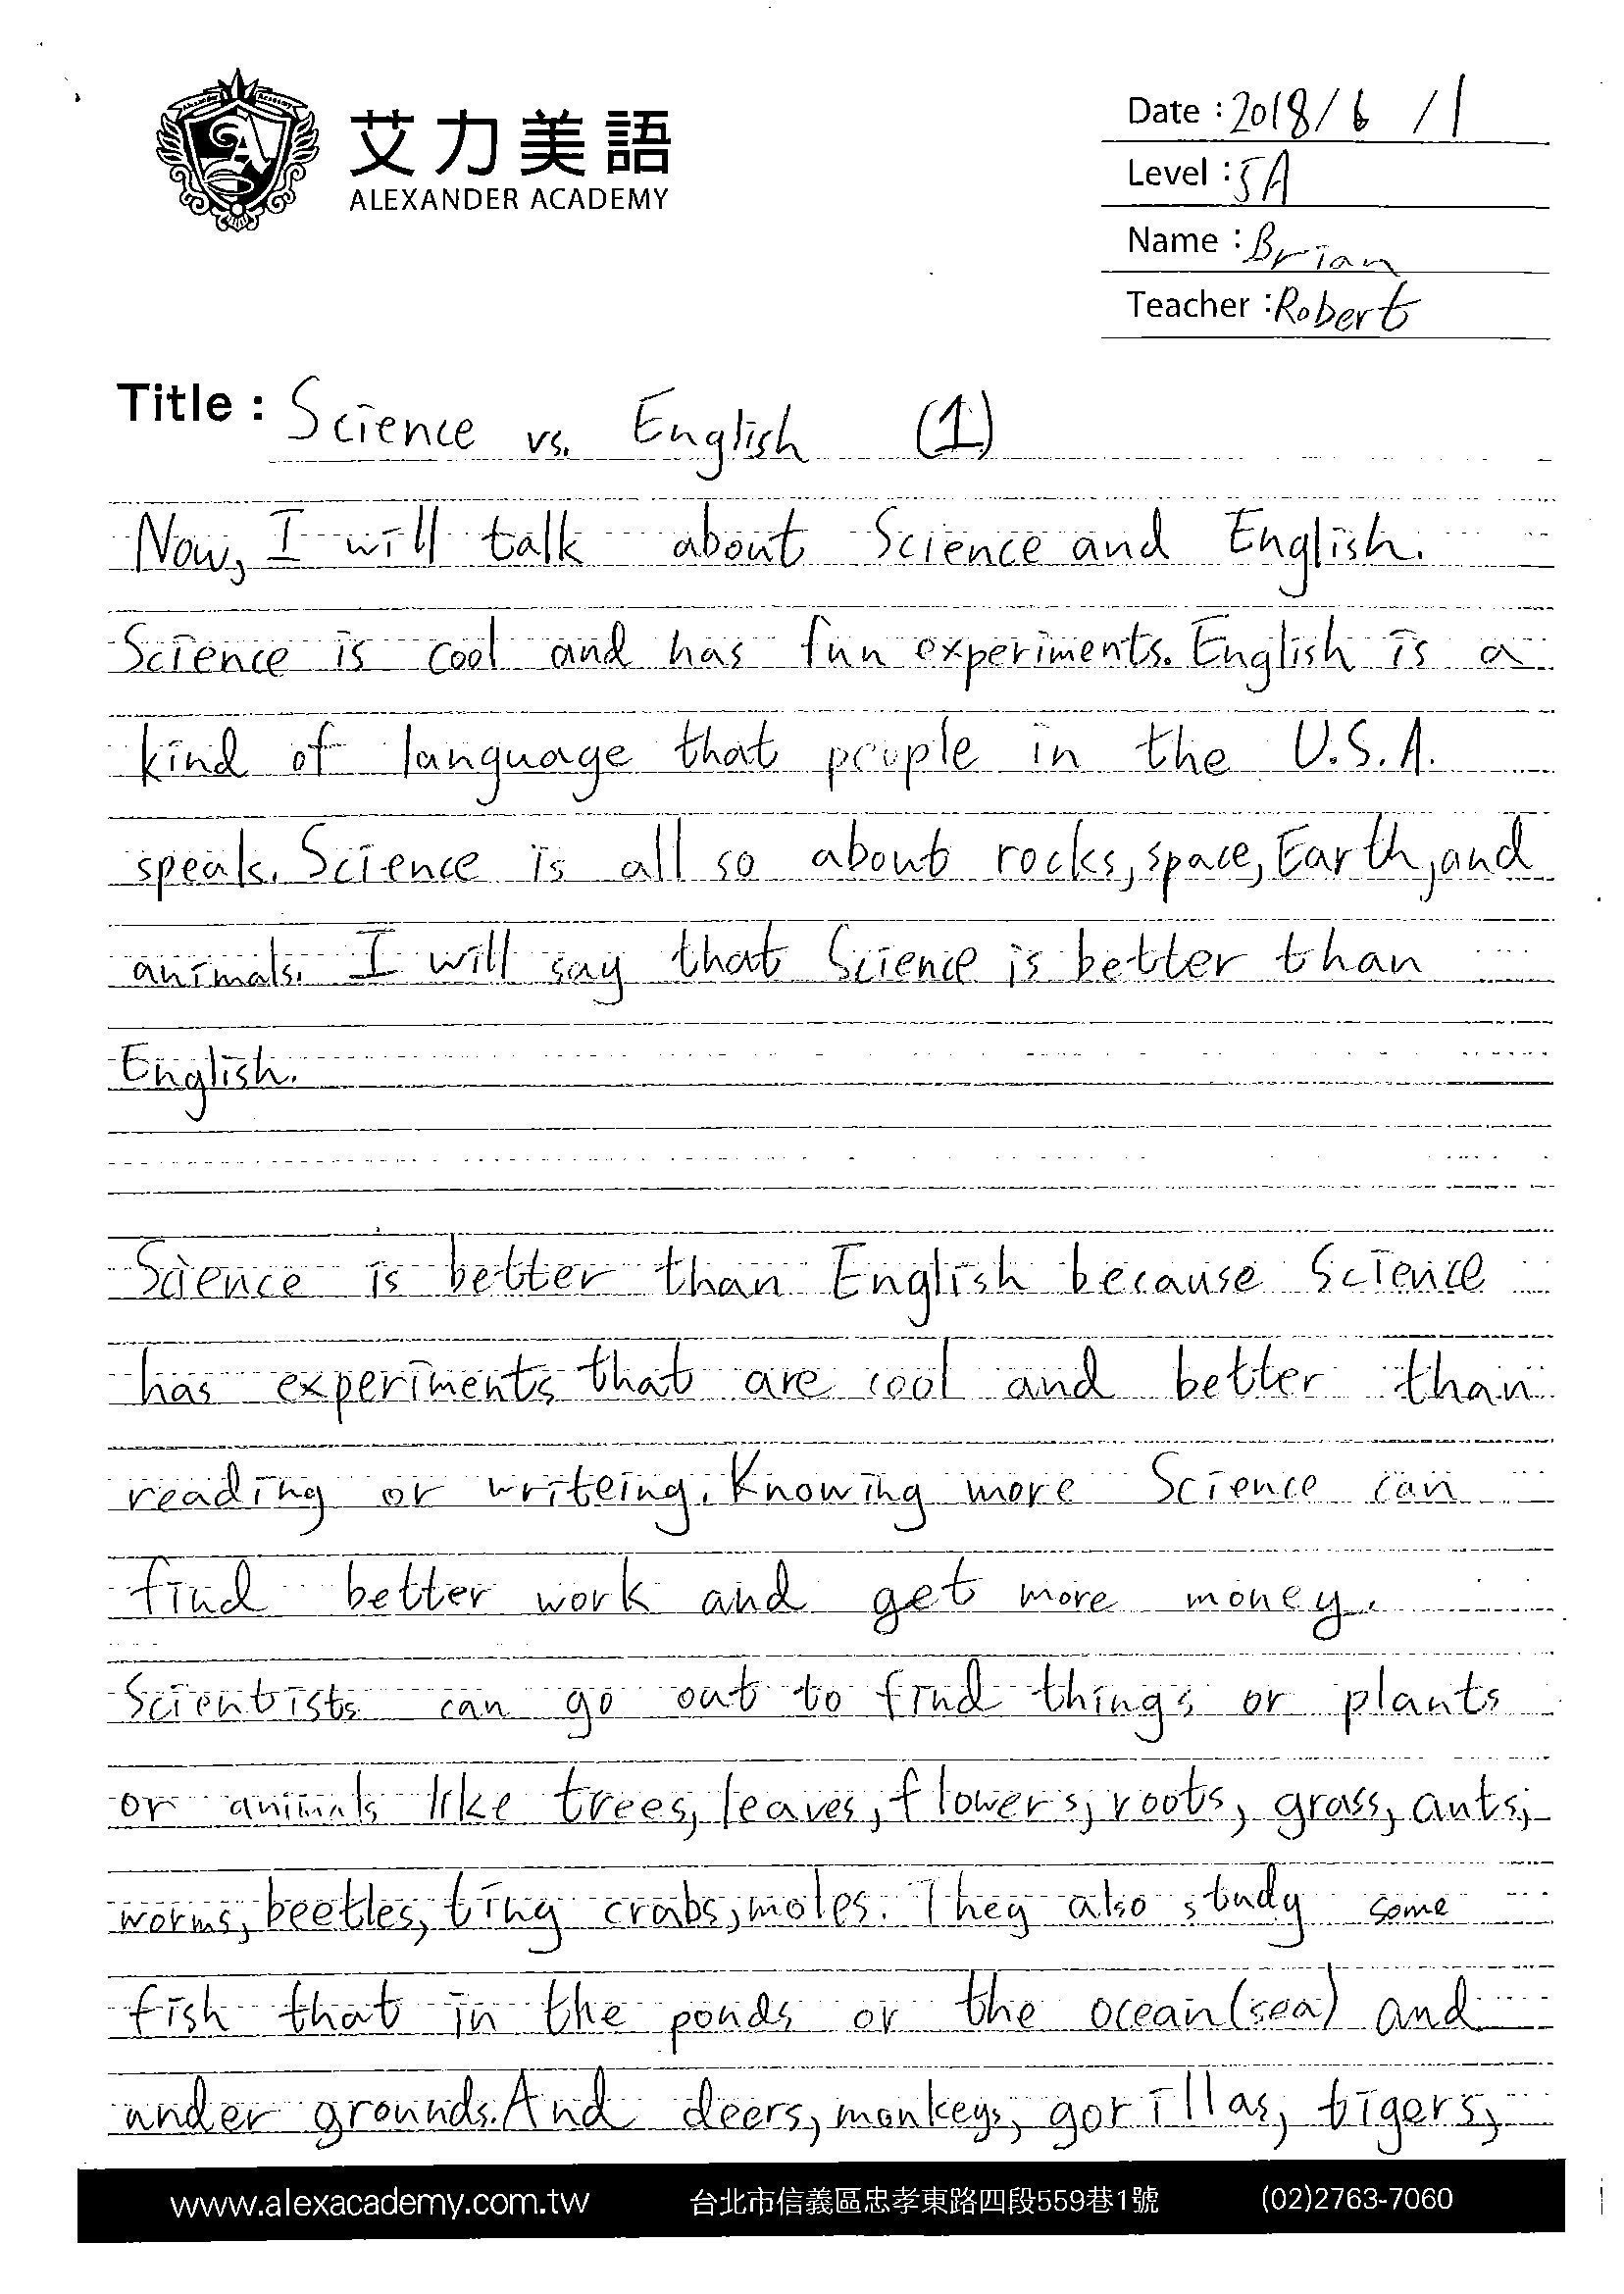 艾力美語
ALEXANDER ACADEMY
Date : 2018/6/1
Level : 5A
Name : Brian
Teacher : Robert
Title : Science vs. English (1)
Now, I will talk about Science and English.
Science is cool and has fun experiments. English is a
kind of language that people in the U.S.A.
speak. Science is all so about rocks, space, Earth, and
animals. I will say that Science is better than
English.
Science is better than English because Science
has experiments that are cool and better than
reading or writeing. Knowing more Science can
find better work and get more money.
Scientists can go out to find things or plants
or animals like trees, leaves, flowers, roots, grass, ants,
worms, beetles, ting crabs, moles. They also study some
fish that in the ponds or the ocean(sea) and
under grounds. And deers, monkeys, gorillas, tigers,
www.alexacademy.com.tw 台北市信義區忠孝東路四段559巷1號 (02)2763-7060